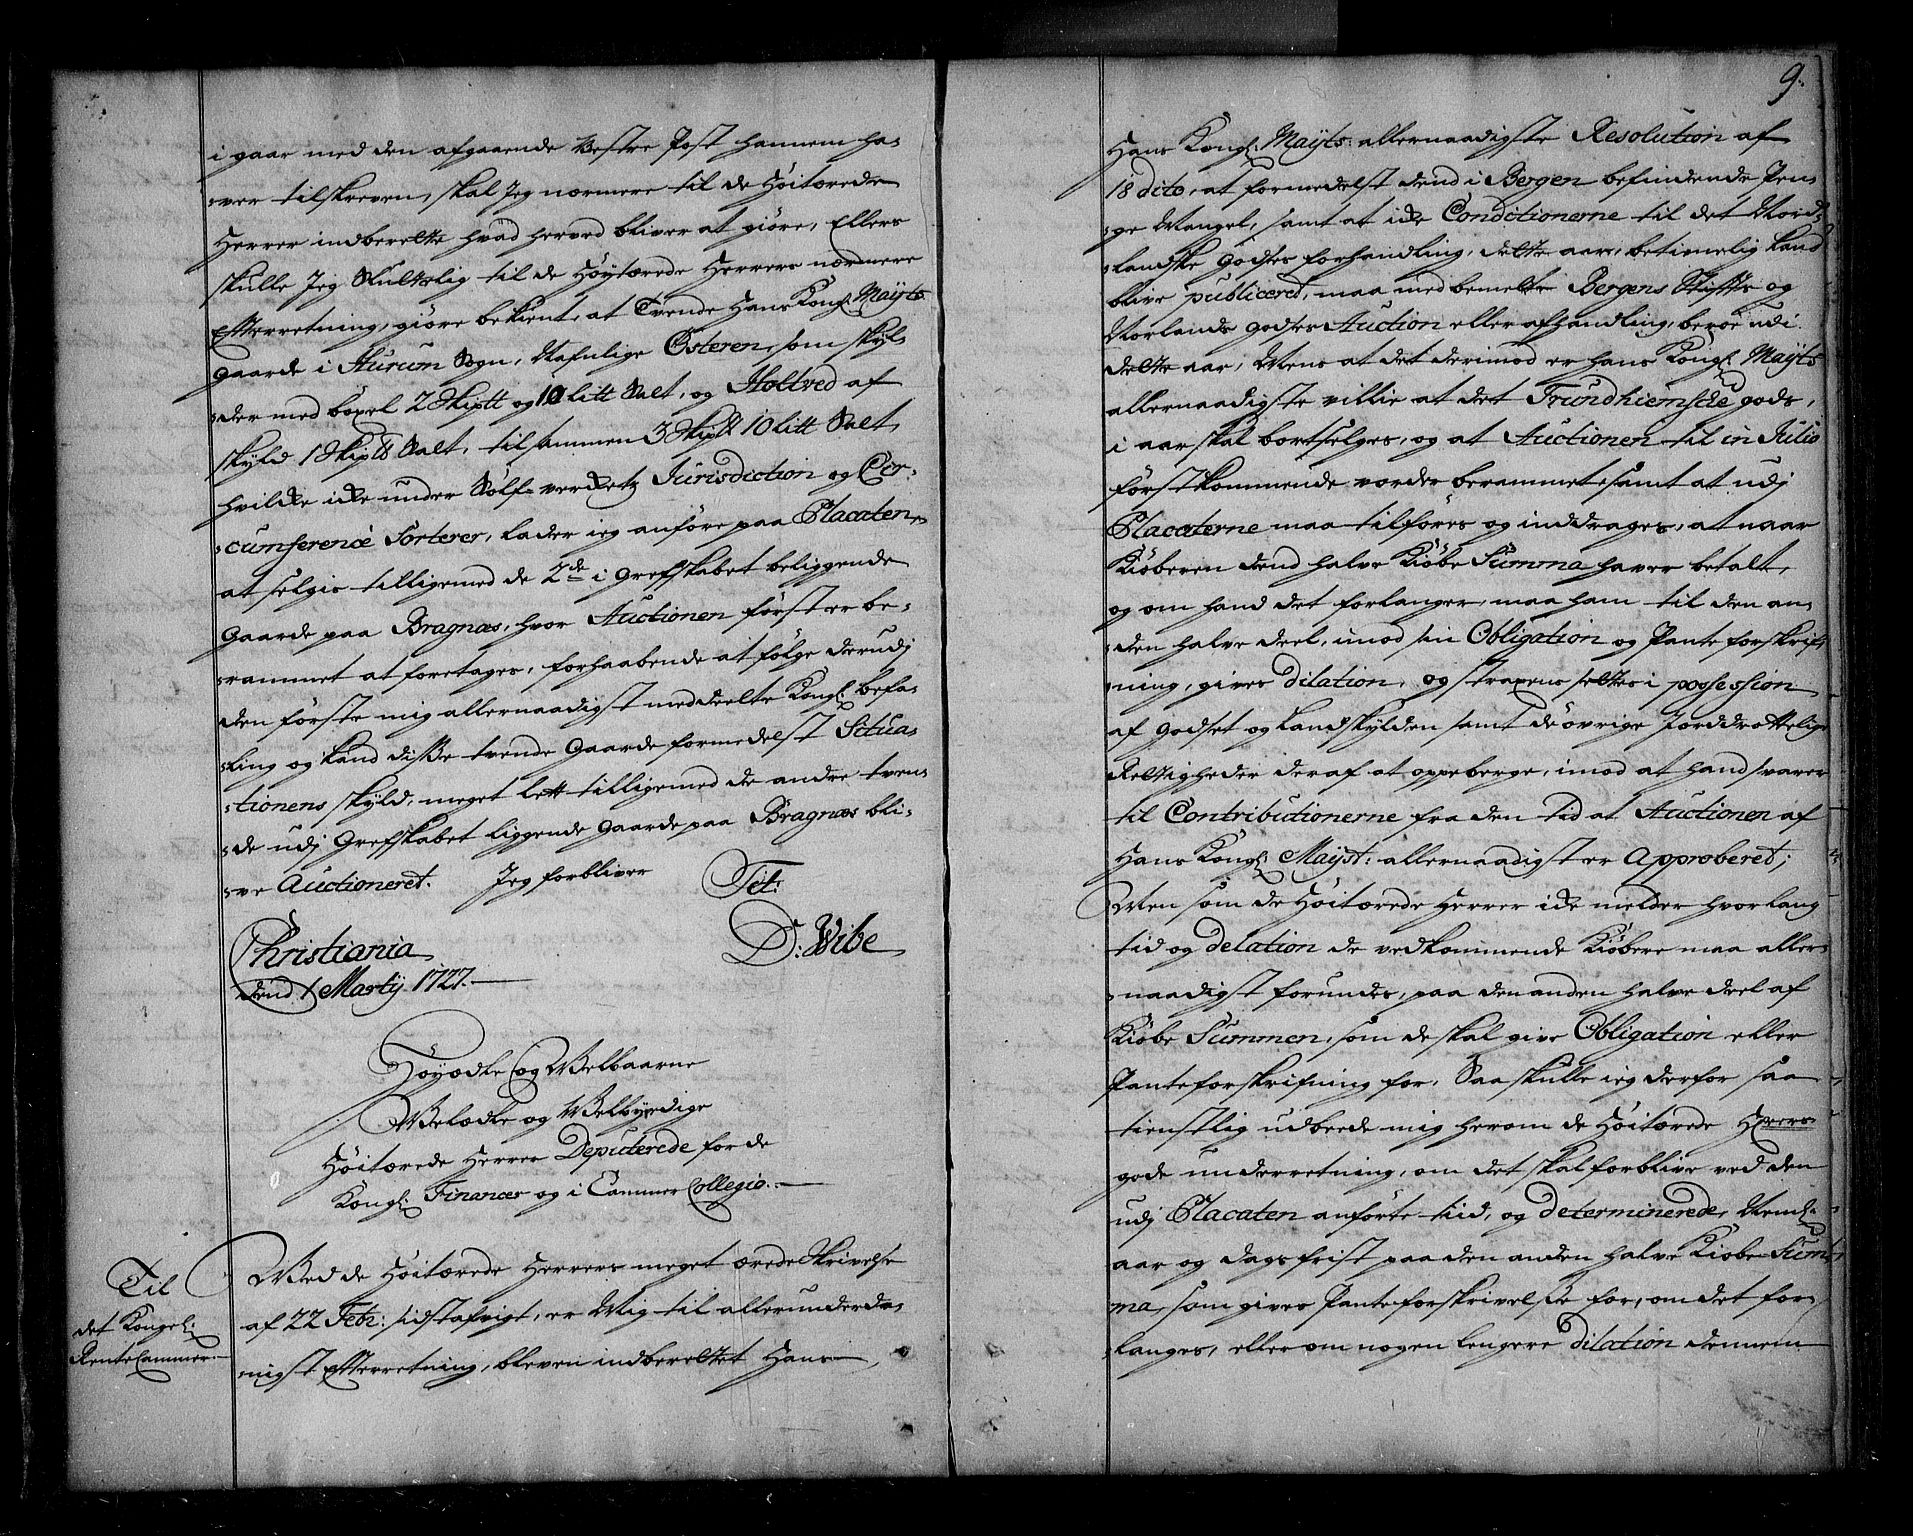 i gaar med den afgaaende Vestre Post hannem ha-
ver tilskreven, skal Jeg nærmere til de Høitærede
Herrer indberette hvad herved bliver at giøre, Ellers
skulle Jeg Skyldig til de Høytærede Herrers nærmere
Efterretning, giøre bekient, at Tvende Hans Kongl. Mayts
Gaarde i Hurum Sogn, Nafnlige Østeren, som skyl-
der med boxel 2 Skiptt og 10 litt Salt, og Holtved af
skyld 1 Skiptt Salt, tilsammen 3 Skiptt 10 litt Salt,
hvilke icke under Sølf-verkets Jurisdiction og Cir-
cumference Sorterer, lader ieg anføre paa Placaten,
at selgis tilligemed de 2de i Grefskabet beliggende
Gaarde paa Bragnæs, hvor Auctionen først er be-
rammet at foretages, forhaabende at følge derudj
den første mig allernaadigst meddeelte Kongl. befa-
ling og kand disse tvende Gaarde formedelst Situa-
tionens skyld, meget lett tilligemed de andre tven-
de udj Grefskabet liggende Gaarde paa Bragnæs bli-
ve Auctioneret. Jeg forbliver Tit:
Christiania D: Wibe
dend 1 Martij 1727.
Høyædle og Welbaarne
Welædle og Welbyrdige
Høitærede Herrer Deputerede for de
Kongl. Financer og i Cammer Collegio.
Til
det Kongel:
Rente Cammer
Wed de Høitærede Herrers meget ærede Skrivelse
af 22 Febr: sidstafvigt, er Mig til allerunderda-
nigst Efterretning, bleven indberettet Hans
9.
Hans Kongl. Mayts: allernaadigste Resolution af
18 dito, at formedelst dend i Bergen befindende Pen-
ge Mangel, samt at icke Conditionerne til det Nord-
landske Godses forhandling, dette aar, betimelig kand
blive publiceret, maa med bemelte Bergens Stiffts og
Norlands Godses Auction eller afhandling, beroe udi
dette aar, Mens at det derimod er Hans Kongl. Mayts
allernaadigste villie at det Trundhiemske gods,
i aar skal bortselges, og at Auctionen til in Julio
førstkommende vorder berammet, samt at udj
Placaterne maa tilføres og inddrages, at naar
Kiøberen dend halve Kiøbe Summa haver betalt,
og om hand det forlanger, maa ham til den an-
den halve deel, imod sin Obligation og Pante forskrif-
ning, gives dilation, og straxens settes i possession
af Godset og Landskylden samt de øvrige Jorddrottelige
Rettigheder deraf at oppeberge, imod at hand svarer
til Contributionerne fra den tid at Auctionen af
Hans Kongl. Mayst: allernaadigst er Approberet;
Men som de Høitærede Herrer icke melder hvor lang
tid og delation de vedkommende Kiøbere maa aller-
naadigst forundes, paa den anden halve deel af
Kiøbe Summen, som de skal give Obligation eller
Panteforskrifning for, Saa skulle ieg derfor saa
tienstlig udbede mig herom de Høitærede Herrers
gode underretning, om det skal forblive ved den
udj Placaten anførte tiid, og determinerede, Neml.
aar og dags frist paa den anden halve Kiøbe Sum-
ma, som gives Panteforskrivelse for, om det for-
langes, eller om nogen lengere dilation dennem